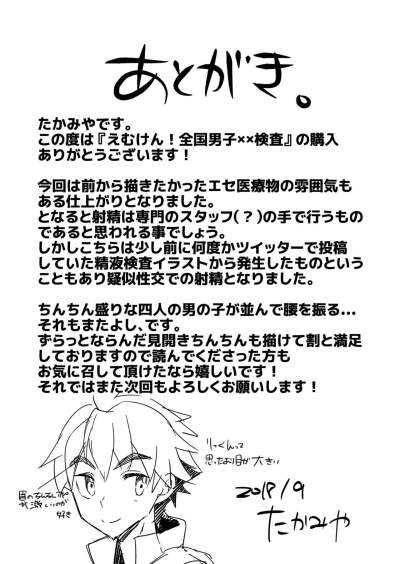 あとがき。
たかみやです。
この度は『えむけん！全国男子××検査』の購入
ありがとうございます！
今回は前から描きたかったエセ医療物の雰囲気も
ある仕上がりとなりました。
となると射精は専門のスタッフ(？)の手で行うもの
であると思われる事でしょう。
しかしこちらは少し前に何度かツイッターで投稿
していた精液検査イラストから発生したものという
こともあり疑似性交での射精となりました。
ちんちん盛りな四人の男の子が並んで腰を振る…
それもまたよし、です。
ずらっとならんだ見開きちんちんも描けて割と満足
しておりますので読んでくださった方も
お気に召して頂けたなら嬉しいです！
それではまた次回もよろしくお願いします！
りっくんって
思ったより目が大きい
好き
2018/9
たかみや